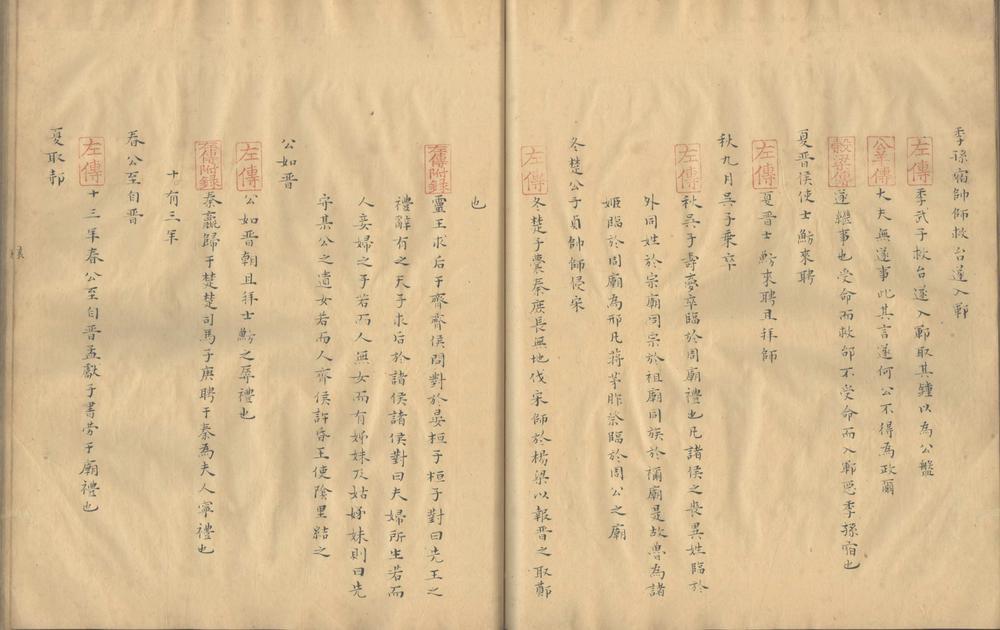 季孫宿帥師救台遂入鄆
左傳 季武子救台遂入鄆取其鐘以為公盤
公羊傳 大夫無遂事此其言遂何公不得為政爾
穀梁傳 遂繼事也受命而救邰不受命而入鄆惡季孫宿也
夏晉侯使士魴來聘
左傳 夏晉士魴來聘且拜師
秋九月吳子乘卒
左傳 秋吳子壽夢卒臨於周廟禮也凡諸侯之喪異姓臨於
外同姓於宗廟同宗於祖廟同族於禰廟是故魯為諸
姬臨於周廟為邢凡蔣茅胙祭臨於周公之廟
冬楚公子貞帥師侵宋
左傳 冬楚子囊秦庶長無地伐宋師於楊梁以報晉之取鄭
也
左傳附錄 靈王求后于齊齊侯問對於晏桓子桓子對曰先王之
禮辭有之天子求后於諸侯諸侯對曰夫婦所生若而
人妾婦之子若而人無女而有姊妹及姑姊妹則曰先
守某公之遺女若而人齊侯許昏王使陰里結之
公如晉
左傳 公如晉朝且拜士魴之辱禮也
左傳附錄 秦嬴歸于楚楚司馬子庚聘于秦為夫人寧禮也
十有三年
春公至自晉
左傳 十三年春公至自晉孟獻子書勞于廟禮也
夏取邿